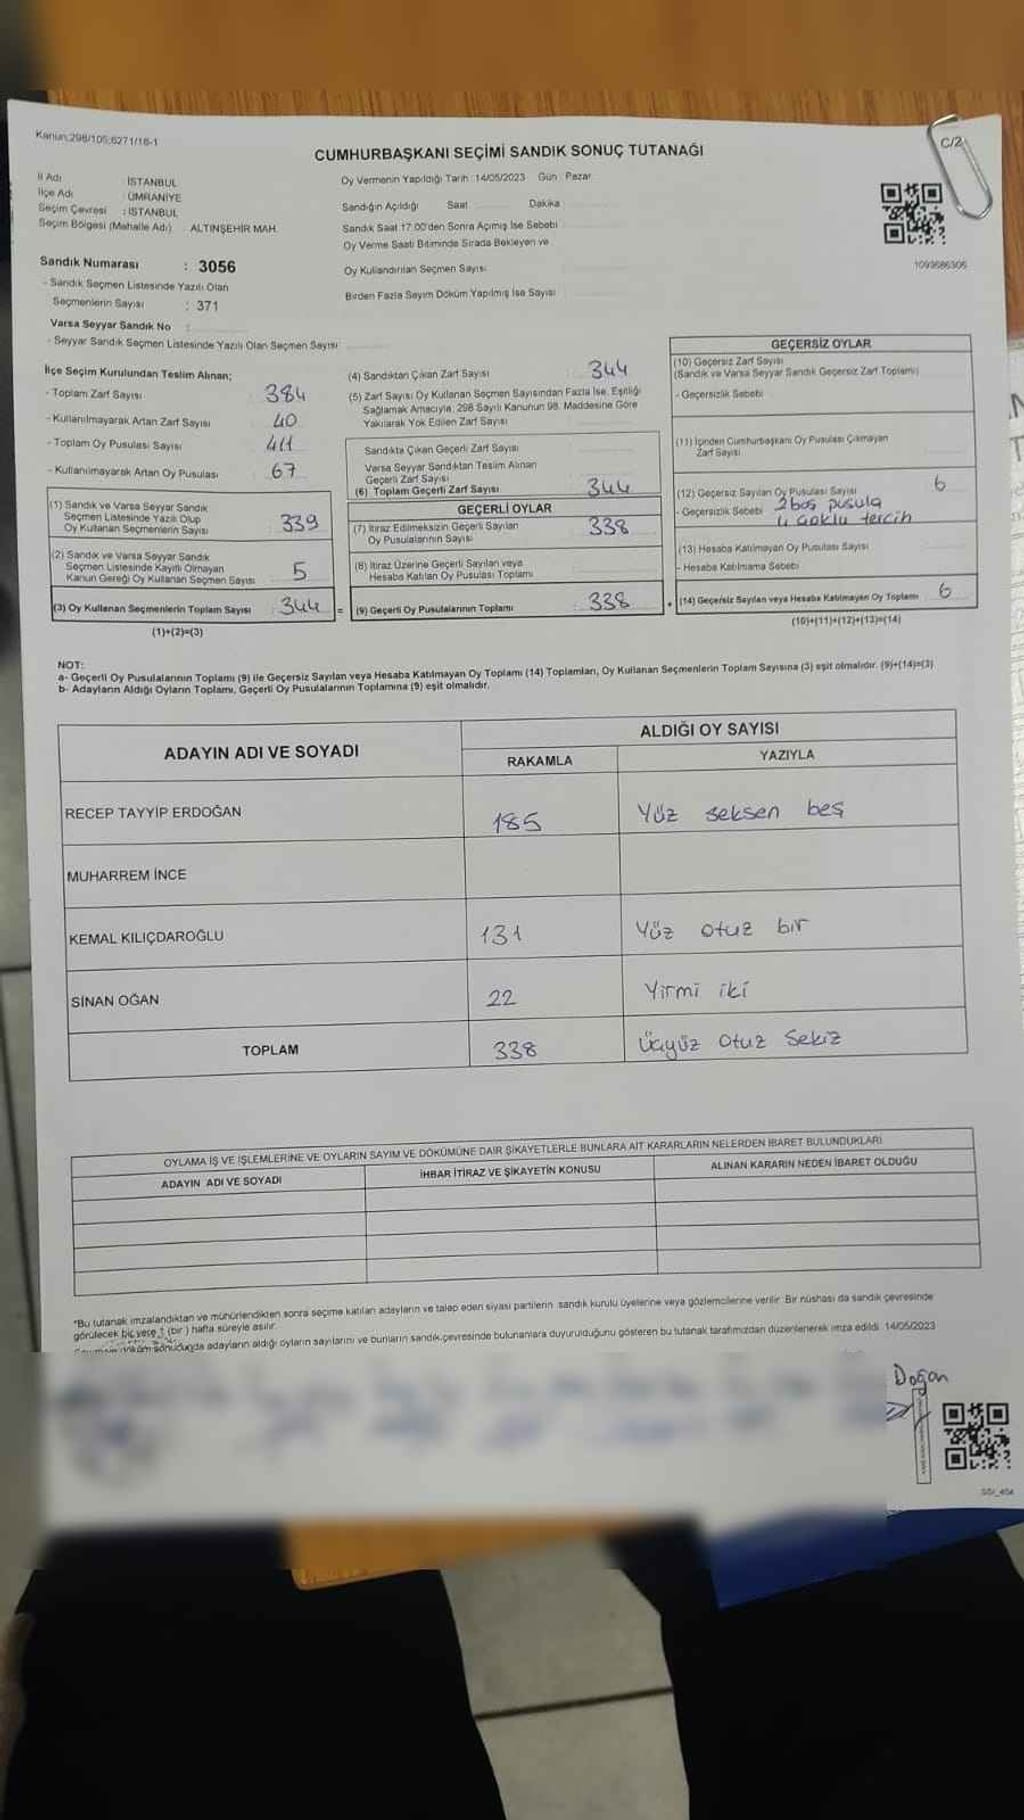 Kanun:298/105;6271/16-1
C/2
CUMHURBAŞKANI SEÇİMİ SANDIK SONUÇ TUTANAĞI
İl Adı İSTANBUL
İlçe Adı ÜMRANİYE
Seçim Çevresi : İSTANBUL
Seçim Bölgesi (Mahalle Adı) ALTINŞEHİR MAH.
Sandık Numarası : 3056
- Sandık Seçmen Listesinde Yazılı Olan
Seçmenlerin Sayısı : 371
Varsa Seyyar Sandık No :
- Seyyar Sandık Seçmen Listesinde Yazılı Olan Seçmen Sayısı
Oy Vermenin Yapıldığı Tarih : 14/05/2023 Gün : Pazar
Sandığın Açıldığı Saat Dakika
Sandık Saat 17:00'den Sonra Açımış İse Sebebi
Oy Verme Saati Bitiminde Sırada Bekleyen ve
Oy Kullandırılan Seçmen Sayısı
Birden Fazla Sayım Döküm Yapılmış İse Sayısı
1093686306
İlçe Seçim Kurulundan Teslim Alınan;
- Toplam Zarf Sayısı 384
- Kullanılmayarak Artan Zarf Sayısı 40
- Toplam Oy Pusulası Sayısı 411
- Kullanılmayarak Artan Oy Pusulası 67
(1) Sandık ve Varsa Seyyar Sandık
Seçmen Listesinde Yazılı Olup
Oy Kullanan Seçmenlerin Sayısı 339
(2) Sandık ve Varsa Seyyar Sandık
Seçmen Listesinde Kayıtlı Olmayan
Kanun Gereği Oy Kullanan Seçmen Sayısı 5
(3) Oy Kullanan Seçmenlerin Toplam Sayısı 344 =
(1)+(2)=(3)
(4) Sandıktan Çıkan Zarf Sayısı 344
(5) Zarf Sayısı Oy Kullanan Seçmen Sayısından Fazla İse, Eşitliği
Sağlamak Amacıyla, 298 Sayılı Kanunun 98. Maddesine Göre
Yakılarak Yok Edilen Zarf Sayısı
Sandıkta Çıkan Geçerli Zarf Sayısı
Varsa Seyyar Sandıktan Teslim Alınan
Geçerli Zarf Sayısı
(6) Toplam Geçerli Zarf Sayısı 344
GEÇERLİ OYLAR
(7) İtiraz Edilmeksizin Geçerli Sayılan
Oy Pusulalarının Sayısı 338
(8) İtiraz Üzerine Geçerli Sayılan veya
Hesaba Katılan Oy Pusulası Toplamı
(9) Geçerli Oy Pusulalarının Toplamı 338 +
GEÇERSİZ OYLAR
(10) Geçersiz Zarf Sayısı
(Sandık ve Varsa Seyyar Sandık Geçersiz Zarf Toplamı)
- Geçersizlik Sebebi
(11) İçinden Cumhurbaşkanı Oy Pusulası Çıkmayan
Zarf Sayısı
(12) Geçersiz Sayılan Oy Pusulası Sayısı 6
- Geçersizlik Sebebi 2 boş pusula
4 çoklu tercih
(13) Hesaba Katılmayan Oy Pusulası Sayısı
- Hesaba Katılmama Sebebi
(14) Geçersiz Sayılan veya Hesaba Katılmayan Oy Toplamı 6
(10)+(11)+(12)+(13)=(14)
NOT:
a- Geçerli Oy Pusulalarının Toplamı (9) ile Geçersiz Sayılan veya Hesaba Katılmayan Oy Toplamı (14) Toplamları, Oy Kullanan Seçmenlerin Toplam Sayısına (3) eşit olmalıdır. (9)+(14)=(3)
b- Adayların Aldığı Oyların Toplamı, Geçerli Oy Pusulalarının Toplamına (9) eşit olmalıdır.
ADAYIN ADI VE SOYADI
ALDIĞI OY SAYISI
RAKAMLA YAZIYLA
RECEP TAYYİP ERDOĞAN 185 Yüz seksen beş
MUHARREM İNCE
KEMAL KILIÇDAROĞLU 131 Yüz otuz bir
SİNAN OĞAN 22 Yirmi iki
TOPLAM 338 Üçyüz Otuz Sekiz
OYLAMA İŞ VE İŞLEMLERİNE VE OYLARIN SAYIM VE DÖKÜMÜNE DAİR ŞİKAYETLERLE BUNLARA AİT KARARLARIN NELERDEN İBARET BULUNDUKLARI
ADAYIN ADI VE SOYADI İHBAR İTİRAZ VE ŞİKAYETİN KONUSU ALINAN KARARIN NEDEN İBARET OLDUĞU
*Bu tutanak imzalandıktan ve mühürlendikten sonra seçime katılan adayların ve talep eden siyasi partilerin sandık kurulu üyelerine veya gözlemcilerine verilir. Bir nüshası da sandık çevresinde
görülecek bir yere 1 (bir) hafta süreyle asılır.
sonucunda adayların aldığı oyların sayılarını ve bunların sandık çevresinde bulunanlara duyurulduğunu gösteren bu tutanak tarafımızdan düzenlenerek imza edildi. 14/05/2023
Doğan